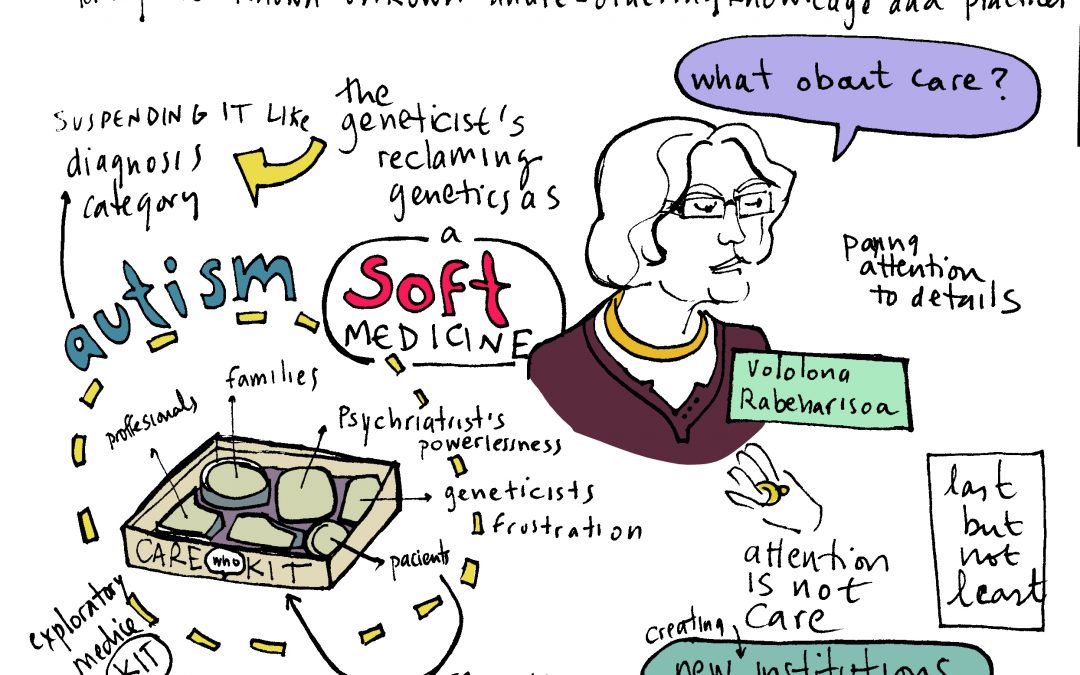 knowledge and practices
what about care?
SUSPENDING IT LIKE
diagnosis
category
the
geneticist's
reclaming
genetics as
a
SOFT
MEDICINE
autism
paying
attention
to details
Vololona
Rabeharisoa
families
professionals
Psychriatrist's
powerlessness
geneticists
frustration
pacients
CARE who KIT
exploratory
KIT
attention
IS not
care
last
but
not
least
creating
new institutions